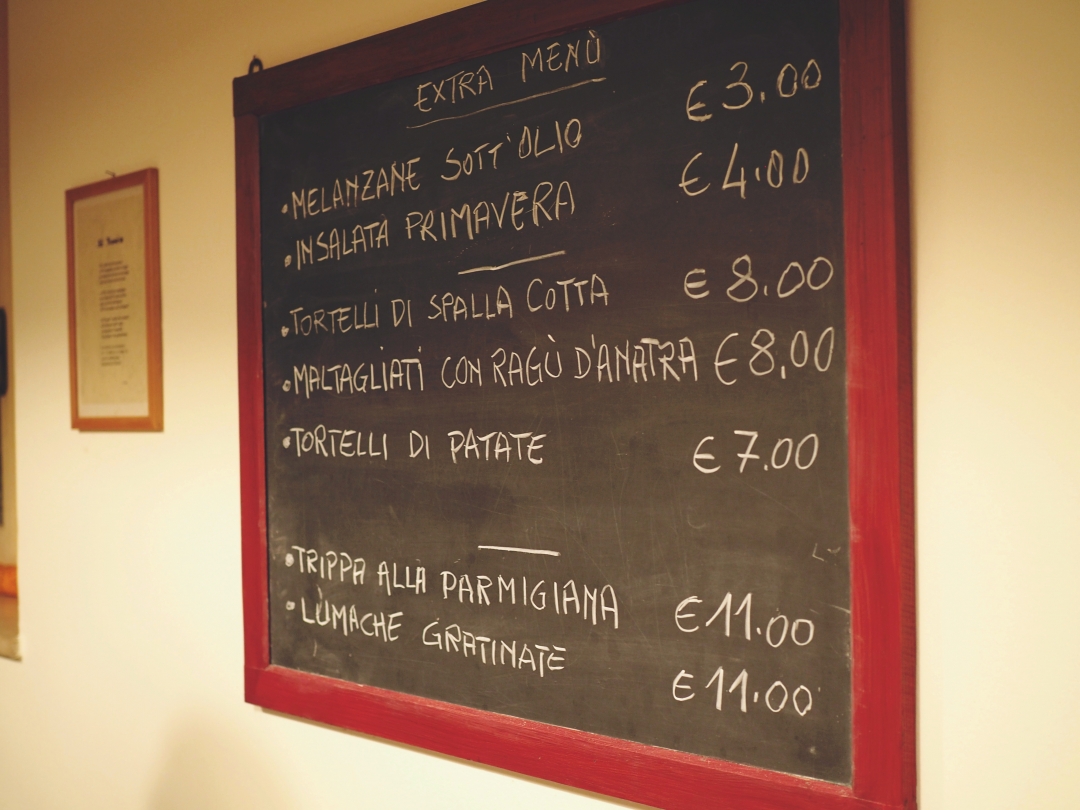 EXTRA MENÙ
• MELANZANE SOTT'OLIO € 3.00
• INSALATA PRIMAVERA € 4.00
• TORTELLI DI SPALLA COTTA € 8.00
• MALTAGLIATI CON RAGÙ D'ANATRA € 8.00
• TORTELLI DI PATATE € 7.00
• TRIPPA ALLA PARMIGIANA € 11.00
• LUMACHE GRATINATE € 11.00